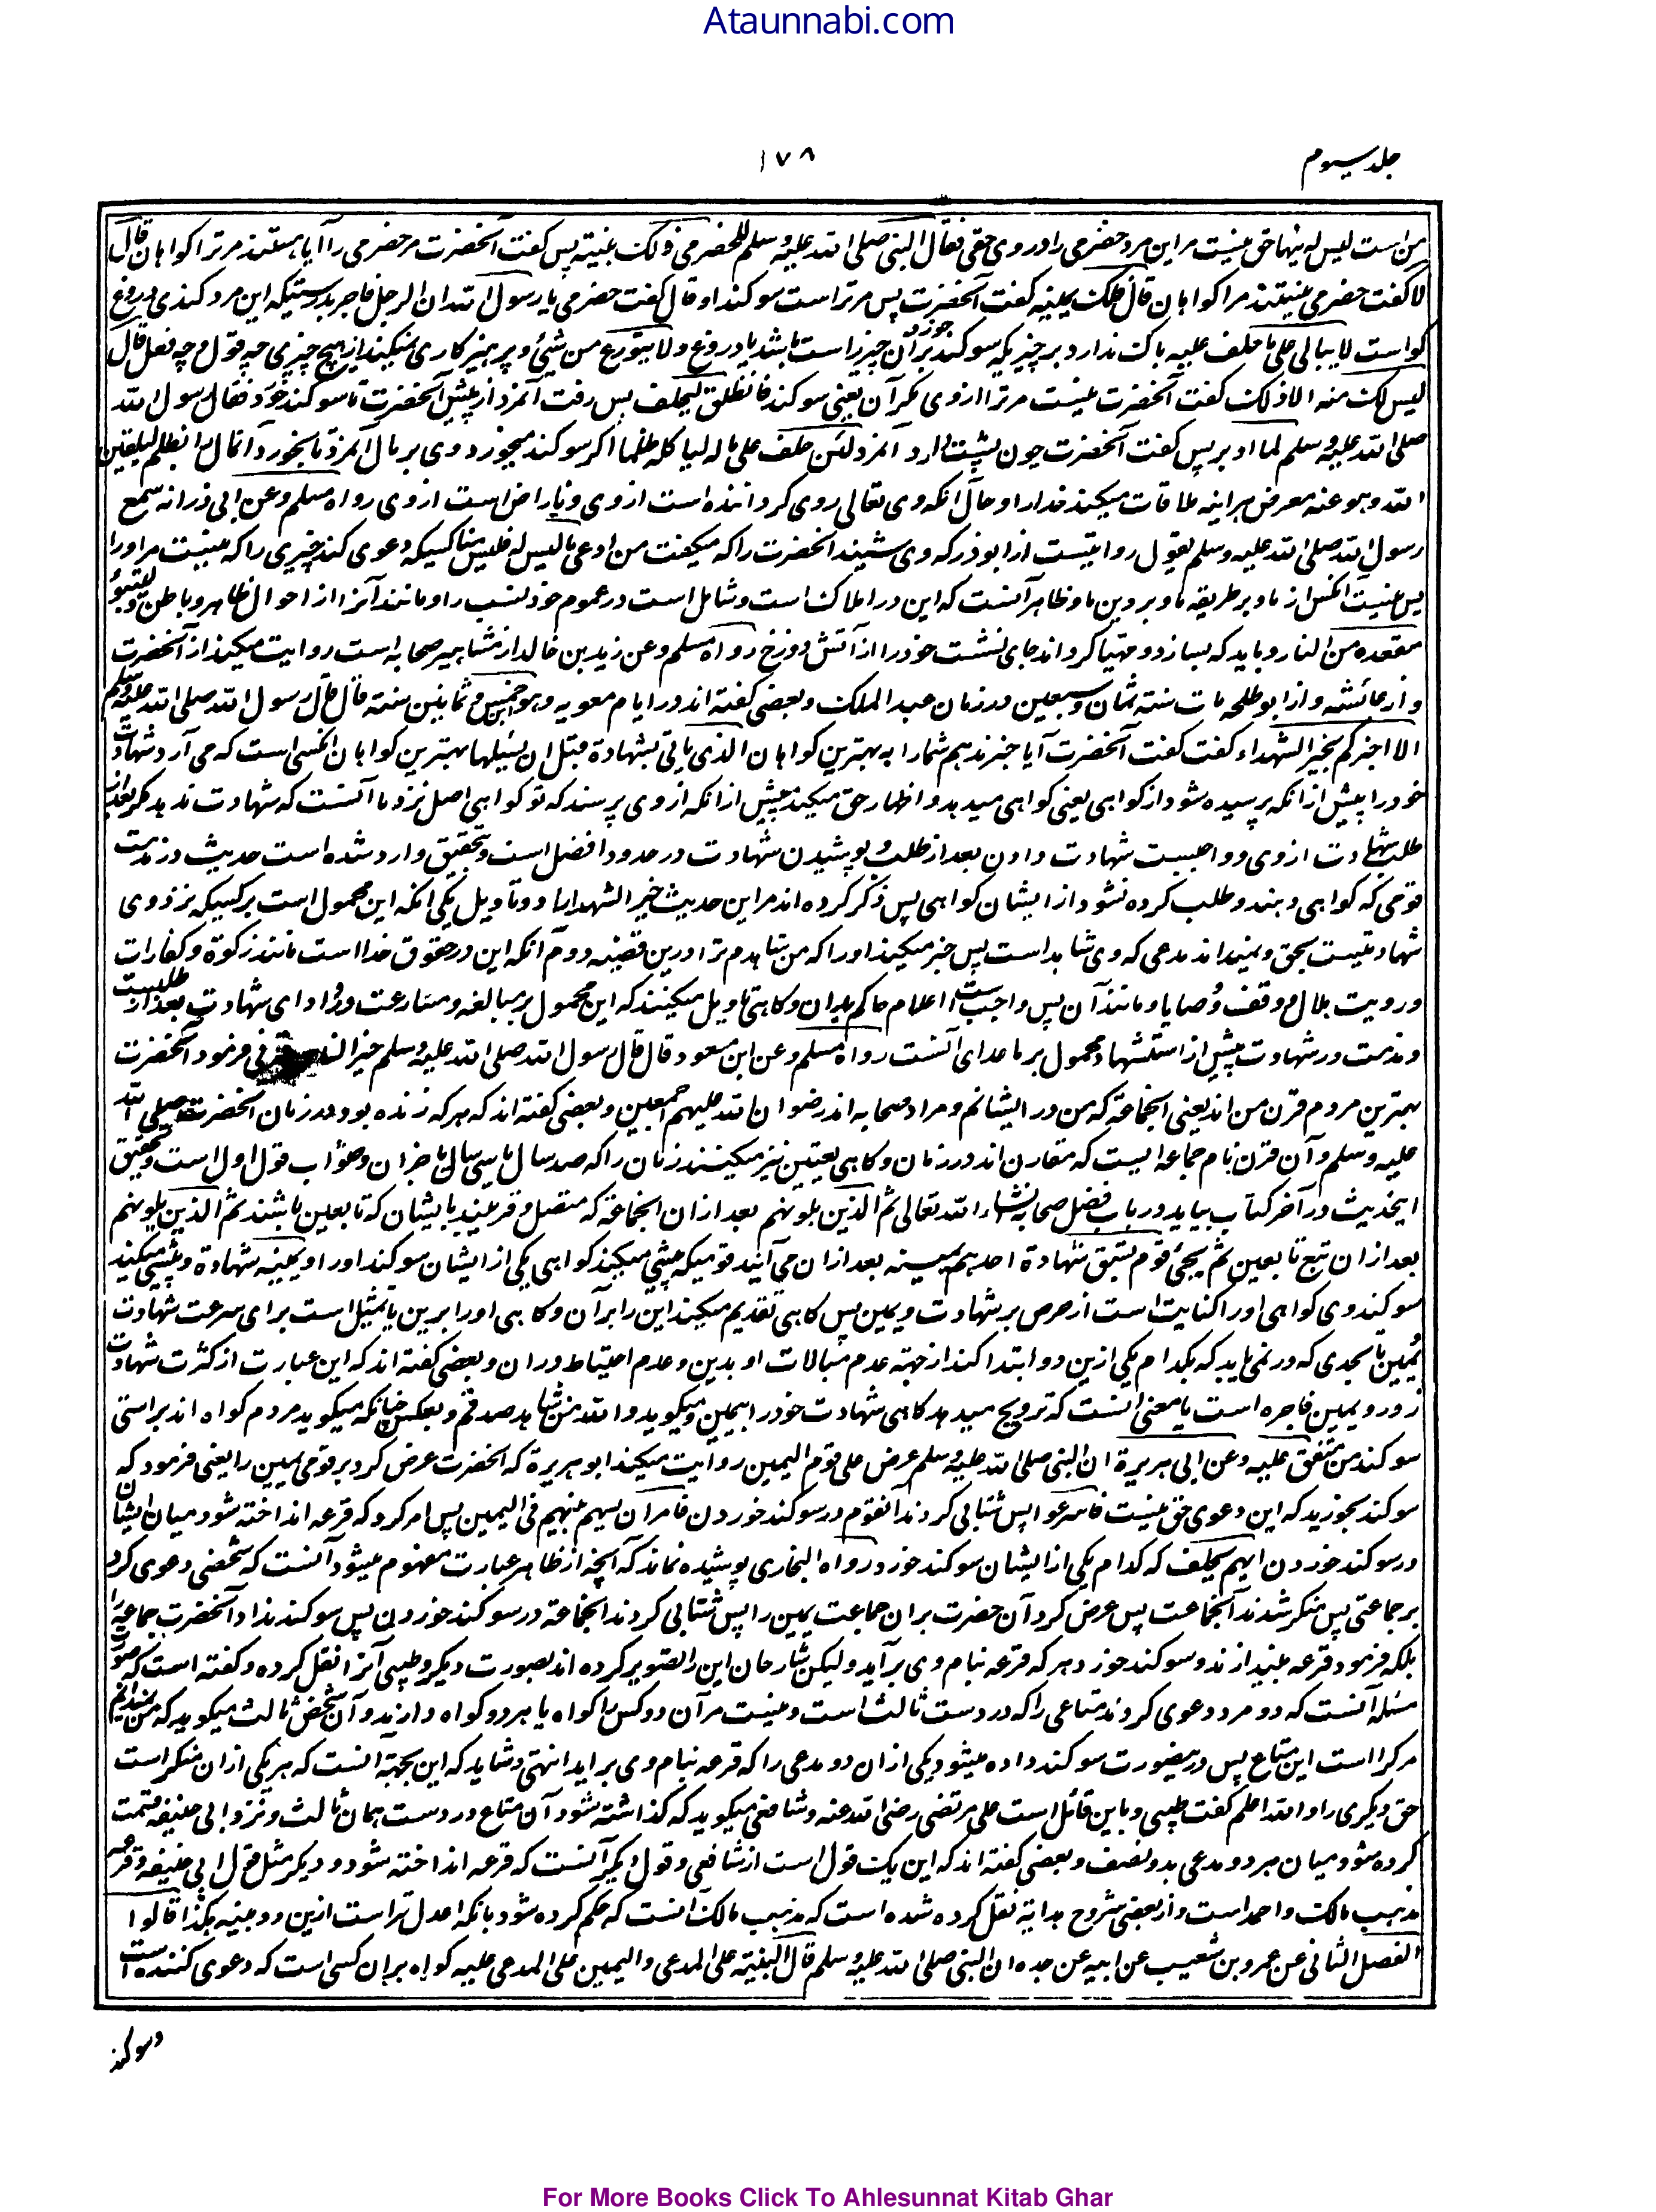 Ataunnabi.com
جلد سیوم
۱۷۸
من است لیس له فیها حق نیست مر این مرد حضرمی را در وی حقی فقال النبی صلی الله علیه وسلم للحضرمی الک بینة پس گفت آنحضرت مر حضرمی را آیا هستند مر ترا گواهان قال
لا گفت حضرمی نیستند مرا گواهان قال فلک یمینه گفت آنحضرت پس مر تراست سوگند او قال گفت حضرمی یا رسول الله ان الرجل فاجر بدرستیکه این مرد کنذی دروغ
گو است لا یبالی علی ما حلف علیه باک ندارد بر چیزیکه سوگند خورد بر آن چیز راست باشد یا دروغ ولا یتورع من شیئ و پرهیزگاری نمیکند از هیچ چیزی چه قول و چه فعل قال
لیس لک منه الا ذلک گفت آنحضرت نیست مر ترا از وی مگر آن یعنی سوگند فانطلق لیحلف پس رفت آنمرد از پیش آنحضرت تا سوگند خورد فقال رسول الله
صلی الله علیه وسلم لما ادبر پس گفت آنحضرت چون پشت داد آنمرد لئن حلف علی ماله لیاکله ظلما اگر سوگند میخورد وی بر مال آنمرد تا بخورد آنمال را بظلم لیلقین
الله وهو عنه معرض هر اینه ملاقات میکند خدا را و حال آنکه وی تعالی روی گرداننده است از وی و ناراض است از وی رواه مسلم وعن ابی ذر انه سمع
رسول الله صلی الله علیه وسلم یقول روایتست از ابوذر که وی شنید آنحضرت را که میگفت من ادعی ما لیس له فلیس منا کسیکه دعوی کند چیزی را که نیست مر او را
پس نیست آنکس از ما و بر طریقه ما و بر دین ما و ظاهر آنست که این در املاک است و شامل است در عموم خود نسب را و مانند آنرا از احوال ظاهر و باطن ولیتبوأ
مقعده من النار و باید که بسازد و مهیا گرداند جای نشست خود را از آتش دوزخ رواه مسلم وعن زید بن خالد از مشاهیر صحابه است روایت میکند از آنحضرت
و از عائشه و از ابو طلحه مات سنة ثمان وسبعین در زمان عبد الملک و بعضی گفته اند در ایام معویه وهو ابن خمس و ثمانین سنة قال قال رسول الله صلی الله علیه وسلم
الا اخبرکم بخیر الشهداء گفت گفت آنحضرت آیا خبر ندهم شما را به بهترین گواهان الذی یاتی بشهادة قبل ان یسئلها بهترین گواهان آنکسی است که می آرد شهادت
خود را پیش از آنکه پرسیده شود از گواهی یعنی گواهی میدهد و اظهار حق میکند پیش از آنکه از وی پرسند که تو گواهی اصل نزد ما آنست که شهادت ندهد مگر بعد از
طلب شهادت از وی و واجبست شهادت دادن بعد از طلب و پوشیدن شهادت در حدود افضل است و بتحقیق وارد شده است حدیث در مذمت
قومی که گواهی دهند و طلب کرده نشود از ایشان گواهی پس ذکر کرده اند مر این حدیث خیر الشهدا را دو تاویل یکی آنکه این محمول است بر کسیکه نزد وی
شهادتیست بحق و نمیداند مدعی که وی شاهد است پس خبر میکند او را که من شاهدم ترا درین قضیه دوم آنکه این در حقوق خدا است مانند زکوة و کفارات
و رویت هلال و وقف و وصایا و مانند آن پس واجبست اعلام حاکم بدان و گاهی تاویل میکنند که این محمول بر مبالغه و مسارعت در ادای شهادت بعد از طلبست
و مذمت در شهادت پیش از استشهاد محمول بر ماعدای آنست رواه مسلم وعن ابن مسعود قال قال رسول الله صلی الله علیه وسلم خیر الناس قرنی فرمود آنحضرت
بهترین مردم قرن من اند یعنی آنجماعة که من در ایشانم و مراد صحابه اند رضوان الله علیهم اجمعین و بعضی گفته اند که هر که زنده بود در زمان آنحضرت صلی الله
علیه وسلم و آن قرن نام جماعه ایست که مقارن اند در زمان و گاهی تعیین نیز میکنند زمان را که صد سال یا سی سال یا جز آن و صواب قول اول است و تحقیق
اینحدیث در آخر کتاب بیاید در باب فضل صحابه انشاء الله تعالی ثم الذین یلونهم بعد از ان آنجماعة که متصل و قریبند بایشان که تابعین باشند ثم الذین یلونهم
بعد از ان تبع تابعین ثم یجیئ قوم تسبق شهادة احدهم یمینه بعد از ان می آیند قومیکه پیشی میکند گواهی یکی از ایشان سوگند او را و یمینه شهادته و پیشی میکند
سوگند وی گواهی او را کنایت است از حرص بر شهادت و یمین پس گاهی تقدیم میکند این را بر آن و گاهی او را برین یا تمثیل است برای سرعت شهادت
و یمین تا بحدی که در نمی یابد که بکدام یکی ازین دو ابتدا کند از جهة عدم مبالات او بدین و عدم احتیاط در ان و بعضی گفته اند که این عبارت از کثرت شهادت
زور و یمین فاجره است یا معنی آنست که ترویج میدهد گاهی شهادت خود را بیمین و میگوید والله من شاهد صدقم و بعکس چنانکه میگوید مردم گواه اند براستی
سوگند من متفق علیه وعن ابی هریرة ان النبی صلی الله علیه وسلم عرض علی قوم الیمین روایت میکند ابو هریرة که آنحضرت عرض کرد بر قومی یمین را یعنی فرمود که
سوگند بخورید که این دعوی حق نیست فاسرعوا پس شتابی کردند آنقوم در سوگند خوردن فامر ان یسهم بینهم فی الیمین پس امر کرد که قرعه انداخته شود میان ایشان
در سوگند خوردن ایهم یحلف که کدام یکی از ایشان سوگند خورد رواه البخاری پوشیده نماند که آنچه از ظاهر عبارت مفهوم میشود آنست که شخصی دعوی کرد
بر جماعتی پس منکر شدند آنجماعت پس عرض کرد آن حضرت بران جماعت یمین را پس شتابی کردند آنجماعة در سوگند خوردن پس سوگند نداد آنحضرت جماعه را
بلکه فرمود قرعه بیندازند و سوگند خورد هر که قرعه بنام وی برآید ولیکن شارحان این را تصویر کرده اند بصورت دیگر و طیبی آنرا نقل کرده و گفته است که صورت
مسئله آنست که دو مرد دعوی کردند متاعی را که در دست ثالث است و نیست مر آن دو کس را گواه یا هر دو گواه دارند و آن شخص ثالث میگوید که من نمیدانم
مر کراست این متاع پس درینصورت سوگند داده میشود یکی از ان دو مدعی را که قرعه بنام وی براید انتهی و شاید که این بجهة آنست که هر یکی از ان منکر است
حق دیگری را والله اعلم گفت طیبی و باین قائل است علی مرتضی رضی الله عنه و شافعی میگوید که گذاشته شود آن متاع در دست همان ثالث و نزد ابی حنیفه قسمت
کرده شود میان هر دو مدعی بدو نصف و بعضی گفته اند که این یک قول است از شافعی و قول دیگر آنست که قرعه انداخته شود و دیگر مثل قول ابی حنیفه و
مذهب مالک و احمد است و از بعضی شروح هدایه نقل کرده شده است که مذهب مالک آنست که حکم کرده شود بانکه اعدل تراست ازین دو بینه هکذا قالوا
الفصل الثانی عن عمرو بن شعیب عن ابیه عن جده ان النبی صلی الله علیه وسلم قال البینة علی المدعی والیمین علی المدعی علیه گواه بران کسی است که دعوی کننده است
و سوگند
For More Books Click To Ahlesunnat Kitab Ghar